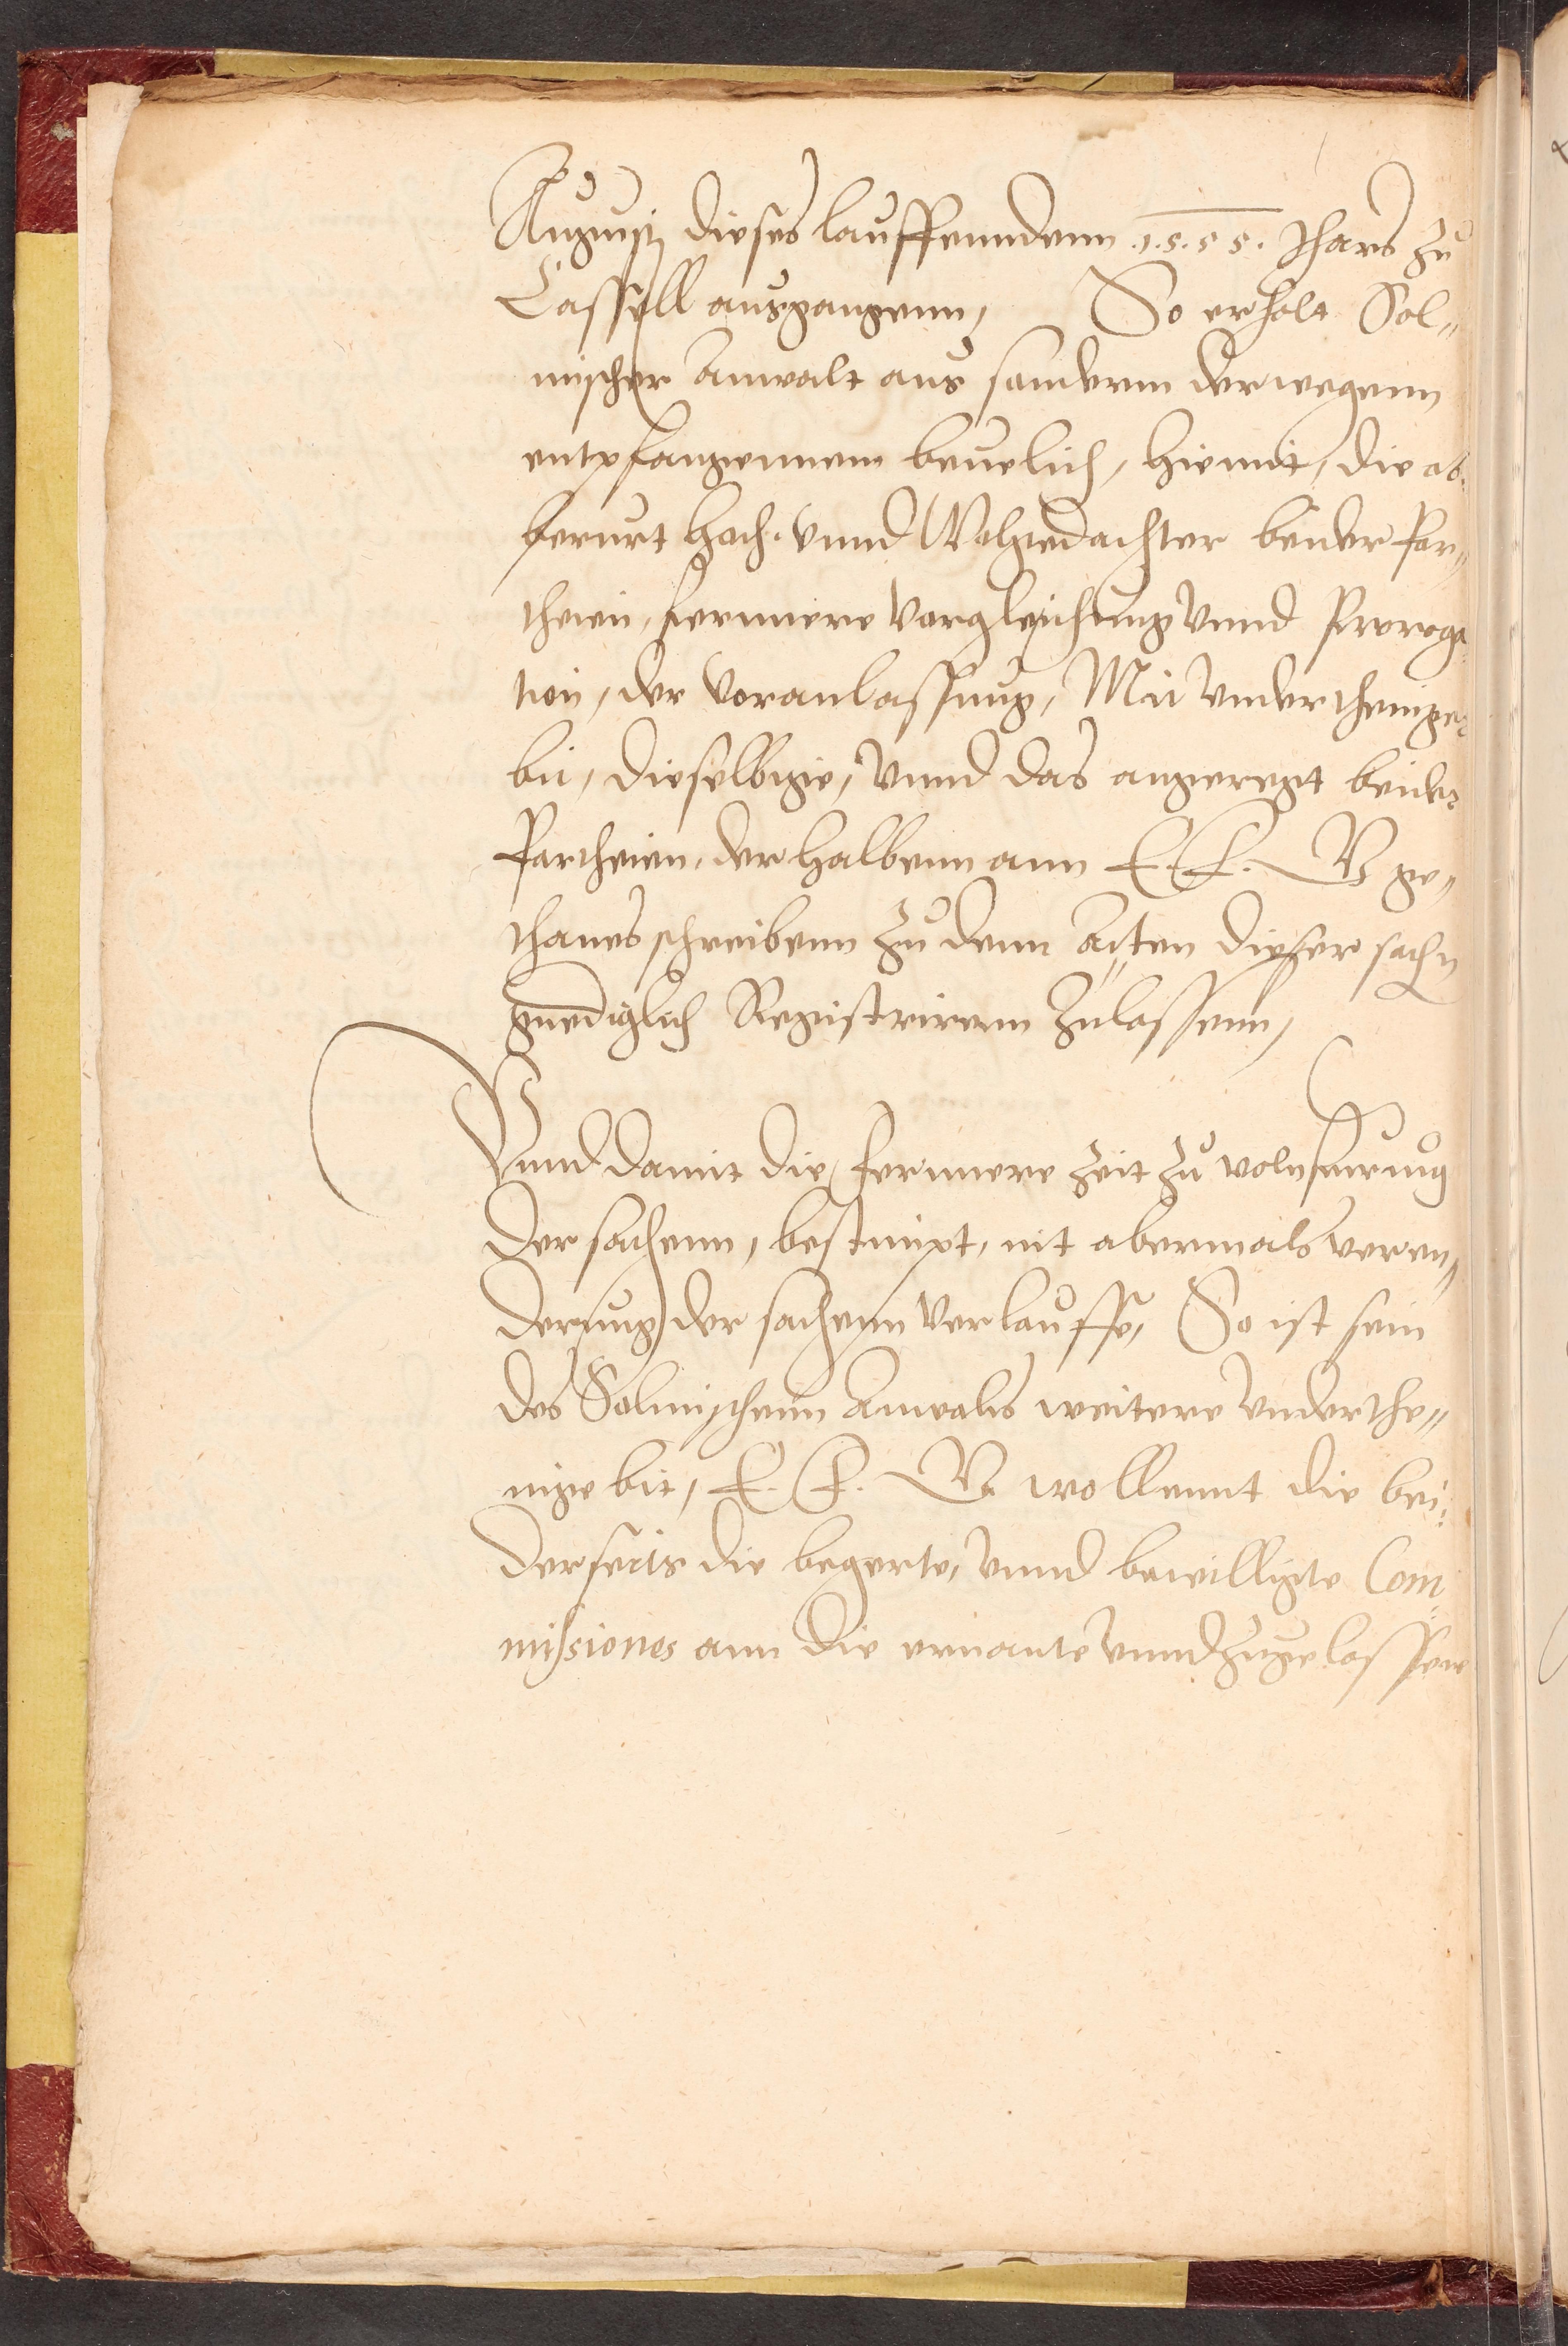 Augustj dieses lauffenndenn .1.5.5 5. Jhars zu
Cassell ausgangenn, So erholt Sol„
mischer Anwalt aus sanderm derwegenn
entpfangennem beuelich, hiemit, die ob„
berurt hoch. vnnd Wolgedachter beider Par„
theien, fernnere vergleichung vnnd Proroga„
tion, der voranlassung, Mit vnderthenige„
bit, dieselbige, vnnd das angeregt beider
Partheien, derhalbenn ann E. F. G ge„
thanes schreibenn zu denn Acten dieser sachn
gnediglich Registrirenn zulassenn,
Vnnd damit die fernnere zeit zu volnfuerung
der sachenn, bestimpt, nit abermals veren„
derung der sachenn verlauffe, So ist sein
des Solmischenn Anwalts weitere vnderthe„
nige bit, E. F. G. wollennt die bei„
derseits die begerte, vnnd bewilligte Com„
missiones ann die ernante vnnd zugelassen